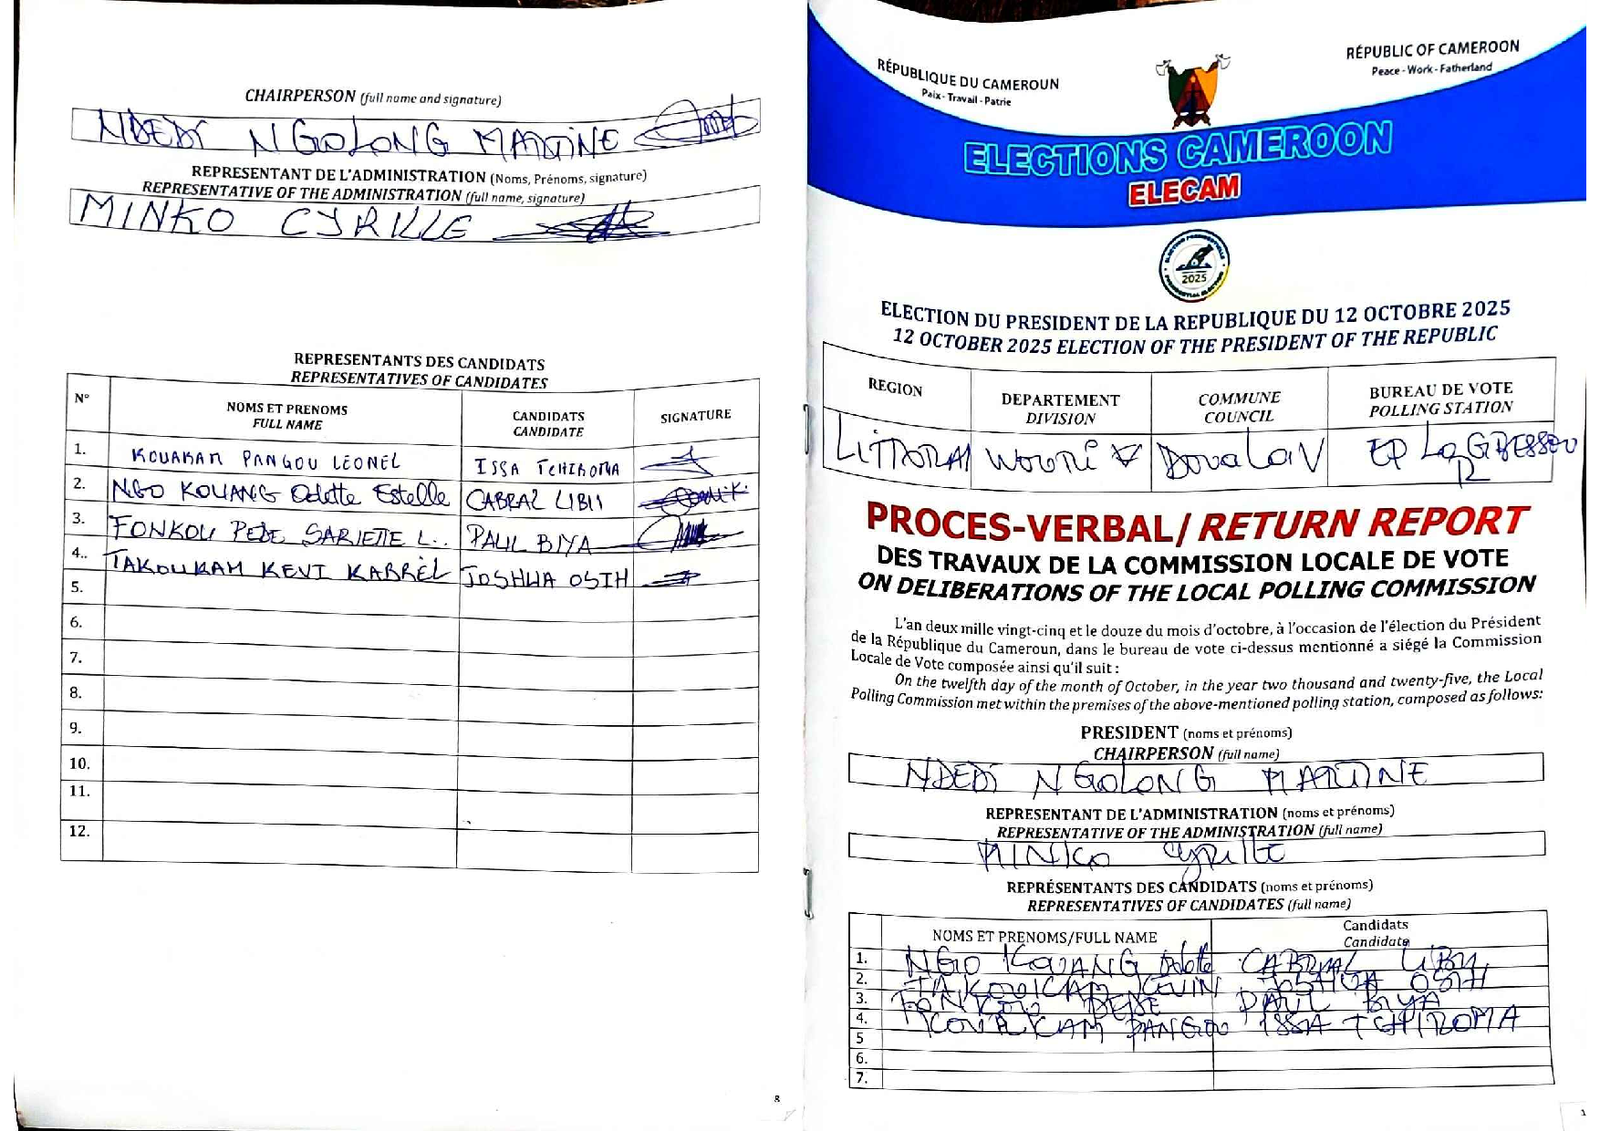 CHAIRPERSON (full name and signature)
NDEDI NGOLONG MARTINE
REPRESENTANT DE L'ADMINISTRATION (Noms, Prénoms, signature)
REPRESENTATIVE OF THE ADMINISTRATION (full name, signature)
MINKO CYRILLE
REPRESENTANTS DES CANDIDATS
REPRESENTATIVES OF CANDIDATES
N° NOMS ET PRENOMS CANDIDATS SIGNATURE
FULL NAME CANDIDATE
1. KOUAKAM PANGOU LEONEL ISSA TCHIROMA
2. NGO KOUANG Odette Estelle CABRAL LIBII
3. FONKOU PEDE SARIETTE L.. PAUL BIYA
4.. TAKOUKAM KEVI KARREL JOSHUA OSIH
5.
6.
7.
8.
9.
10.
11.
12.
8
RÉPUBLIQUE DU CAMEROUN
Paix - Travail - Patrie
RÉPUBLIC OF CAMEROON
Peace - Work - Fatherland
ELECTIONS CAMEROON
ELECAM
ELECTION PRESIDENTIELLE
2025
PRESIDENTIAL ELECTION
ELECTION DU PRESIDENT DE LA REPUBLIQUE DU 12 OCTOBRE 2025
12 OCTOBER 2025 ELECTION OF THE PRESIDENT OF THE REPUBLIC
REGION DEPARTEMENT COMMUNE BUREAU DE VOTE
DIVISION COUNCIL POLLING STATION
LITTORAL WOURI Douala V EP
PROCES-VERBAL/ RETURN REPORT
DES TRAVAUX DE LA COMMISSION LOCALE DE VOTE
ON DELIBERATIONS OF THE LOCAL POLLING COMMISSION
L'an deux mille vingt-cinq et le douze du mois d'octobre, à l'occasion de l'élection du Président
de la République du Cameroun, dans le bureau de vote ci-dessus mentionné a siégé la Commission
Locale de Vote composée ainsi qu'il suit :
On the twelfth day of the month of October, in the year two thousand and twenty-five, the Local
Polling Commission met within the premises of the above-mentioned polling station, composed as follows:
PRESIDENT (noms et prénoms)
CHAIRPERSON (full name)
NDEDI NGOLONG MARTINE
REPRESENTANT DE L'ADMINISTRATION (noms et prénoms)
REPRESENTATIVE OF THE ADMINISTRATION (full name)
MINKO Cyrille
REPRÉSENTANTS DES CANDIDATS (noms et prénoms)
REPRESENTATIVES OF CANDIDATES (full name)
NOMS ET PRENOMS/FULL NAME Candidats
Candidate
1. NGO KOUANG Odette CABRAL LIBII
2. TAKOUKAM KEVIN JOSHUA OSIH
3. FONKOU PEDE PAUL BIYA
4. KOUAKAM PANGOU ISSA TCHIROMA
5
6.
7.
1